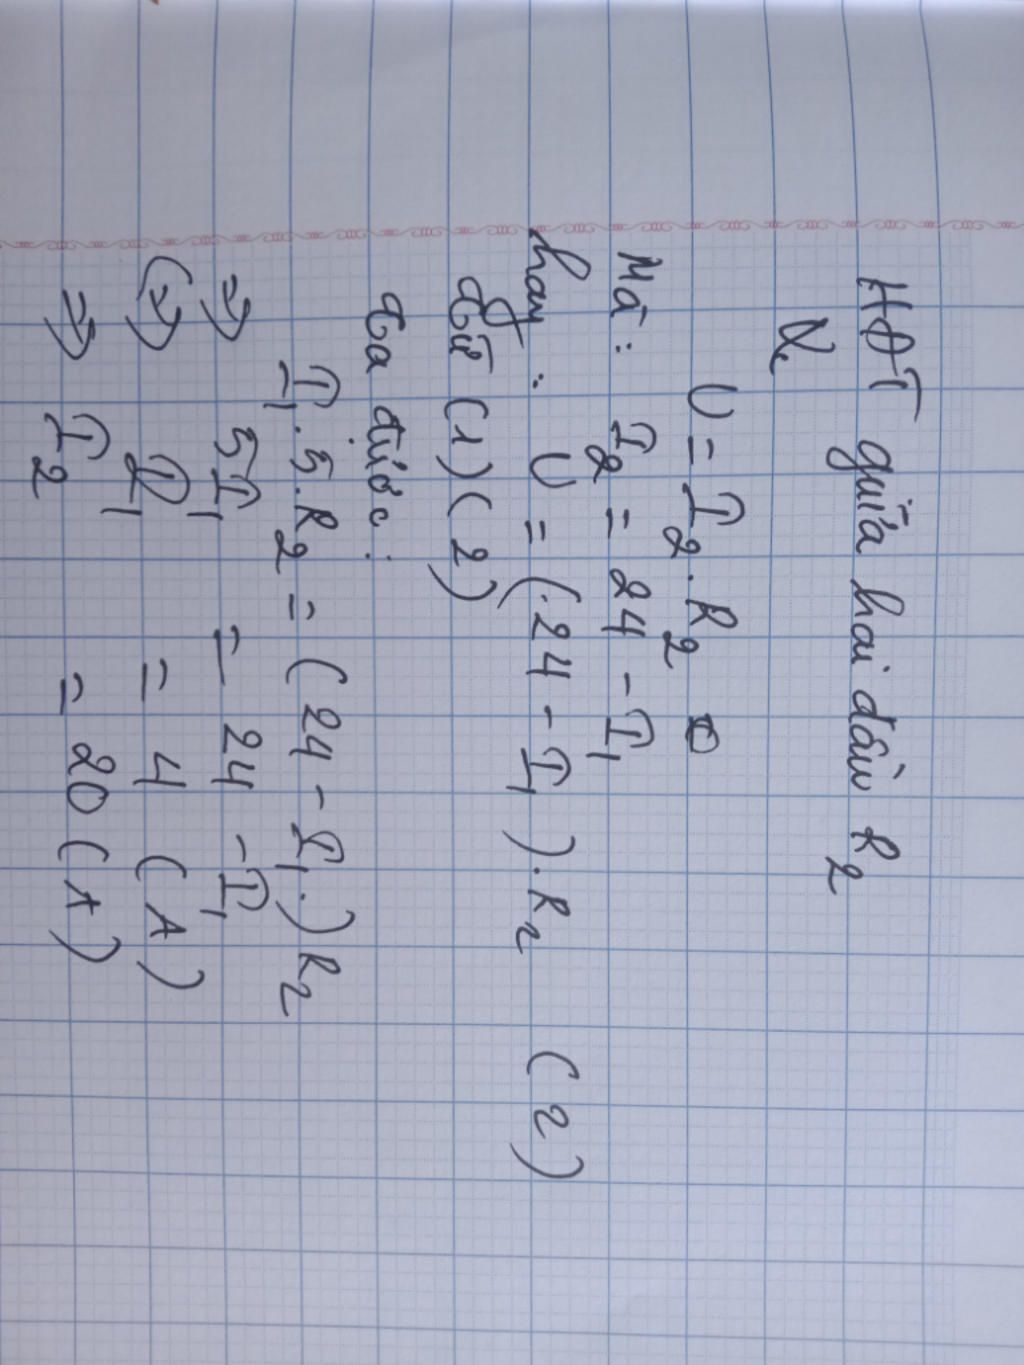 HĐT giữa hai đầu R2
U = I2 . R2
Mà : I2 = 24 - I1
hay : U = (24 - I1) . R2 (2)
Từ (1) (2)
ta được :
I1 . 5 . R2 = (24 - I1.) R2
=> 5I1 = 24 - I1
<=> I1 = 4 (A)
=> I2 = 20 (A)